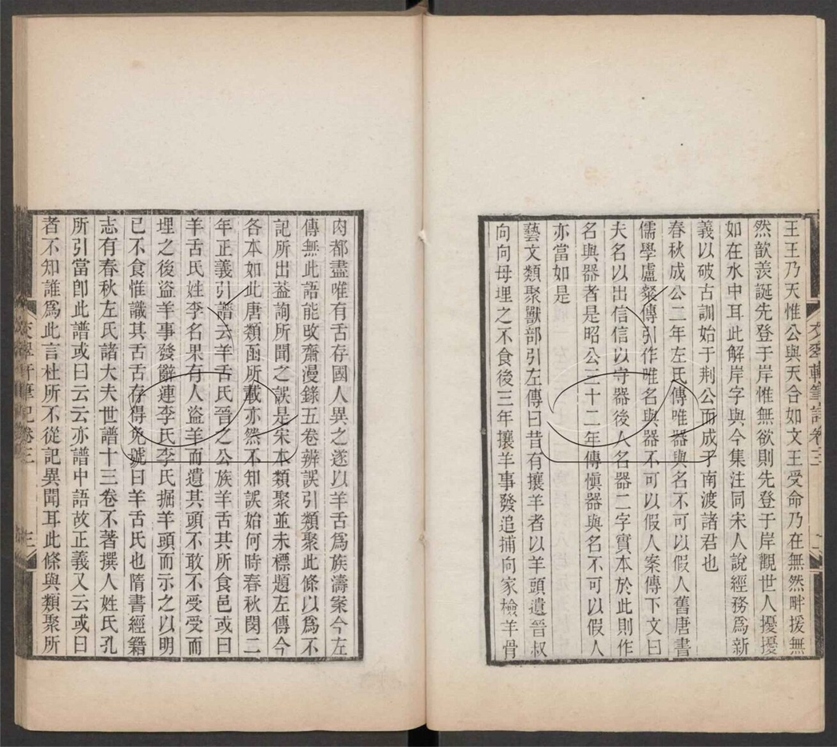 王王乃天惟公與天合如文王受命乃在無然畔援無
然歆羨誕先登于岸惟無欲則先登于岸觀世人擾擾
如在水中耳此解岸字與今集注同宋人說經務為新
義以破古訓始于荆公而成于南渡諸君也
春秋成公二年左氏傳唯器與名不可以假人舊唐書
儒學盧粲傳引作唯名與器不可以假人案傳下文曰
夫名以出信信以守器後人名器二字實本於此則作
名與器者是昭公三十二年傳慎器與名不可以假人
亦當如是
藝文類聚獸部引左傳曰昔有攘羊者以羊頭遺晉叔
向向母埋之不食後三年攘羊事發追捕向家檢羊骨
肉都盡唯有舌存國人異之遂以羊舌為族濤案今左
傳無此語能改齋漫錄五卷辨誤引類聚此條以為不
記所出葢詢所聞之誤是宋本類聚並未標題左傳今
各本如此唐類函所載亦然不知誤始何時春秋閔二
年正義引譜云羊舌氏晉之公族羊舌其所食邑或曰
羊舌氏姓李名果有人盜羊而遺其頭不敢不受受而
埋之後盜羊事發辭連李氏李氏掘羊頭而示之以明
已不食惟識其舌舌存得免號曰羊舌氏也隋書經籍
志有春秋左氏諸大夫世譜十三卷不著撰人姓氏孔
所引當卽此譜或曰云云亦譜中語故正義又云或曰
者不知誰為此言杜所不從記異聞耳此條與類聚所